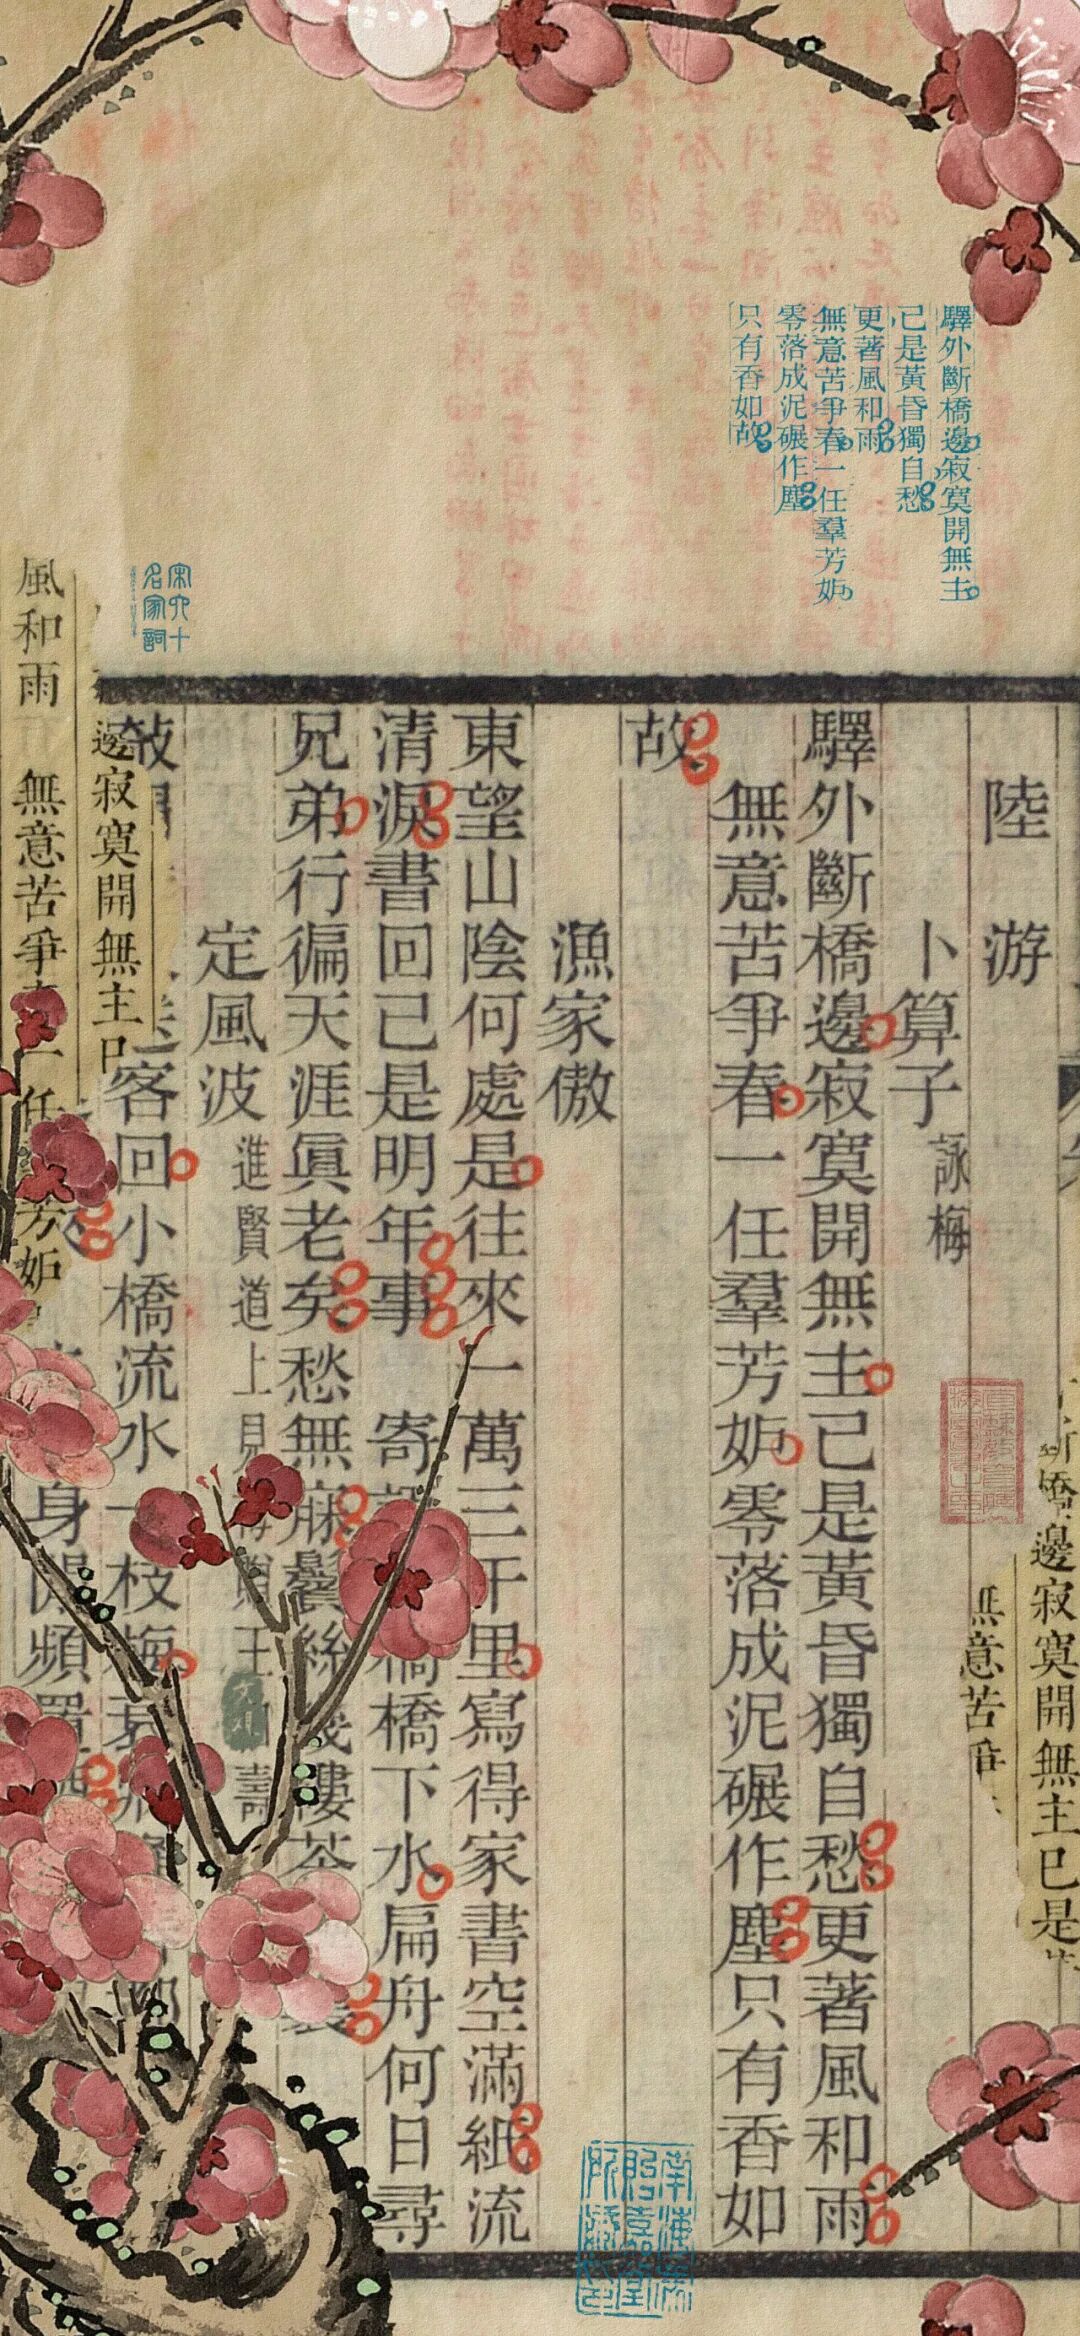 驛外斷橋邊寂寞開無主
已是黃昏獨自愁
更著風和雨
無意苦爭春一任羣芳妒
零落成泥碾作塵
只有香如故
宋六十
名家詞
陸游
卜算子 詠梅
驛外斷橋邊寂寞開無主已是黃昏獨自愁更著風和雨
無意苦爭春一任羣芳妒零落成泥碾作塵只有香如
故
漁家傲
東望山陰何處是往來一萬三千里寫得家書空滿紙流
清淚書回已是明年事 寄 橋橋下水扁舟何日尋
兄弟行徧天涯眞老矣愁無寐鬢絲幾縷茶
定風波 進賢道上見梅贈王伯壽
敲 客回小橋流水一枝梅衰病
身閑頻置
邊寂寞開無主已
風和雨 無意苦爭春一任 芳妒
斷橋邊寂寞開無主已是
無意苦爭